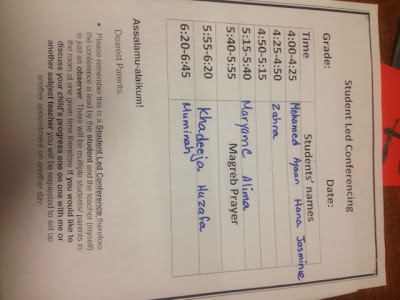 Student Led Conferencing
Grade: Date:
Time Students' names
4:00-4:25 Mohamed Ajaan Hana Jasmine
4:25-4:50 Zahra
4:50-5:15
5:15-5:40 Maryam C Alima
5:40-5:55 Magreb Prayer
5:55-6:20 Khadeeja Huzafa
6:20-6:45 Muminah
Assalamu-alaikum!
Dearest Parents,
• Please remember this is a Student Led Conference therefore
the conference is lead by the student and the teacher (myself)
is just an observer. There will be multiple students/ parents in
the room at one given time therefore if you would like to
discuss your child's progress one on one with me or
another subject teacher you will be requested to set up
another appointment on another day.